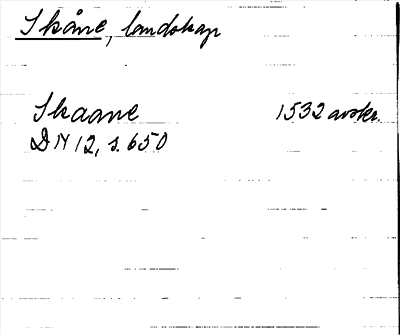 Skåne, landskap
Skaane 1532 avskr.
DN 12, s. 650